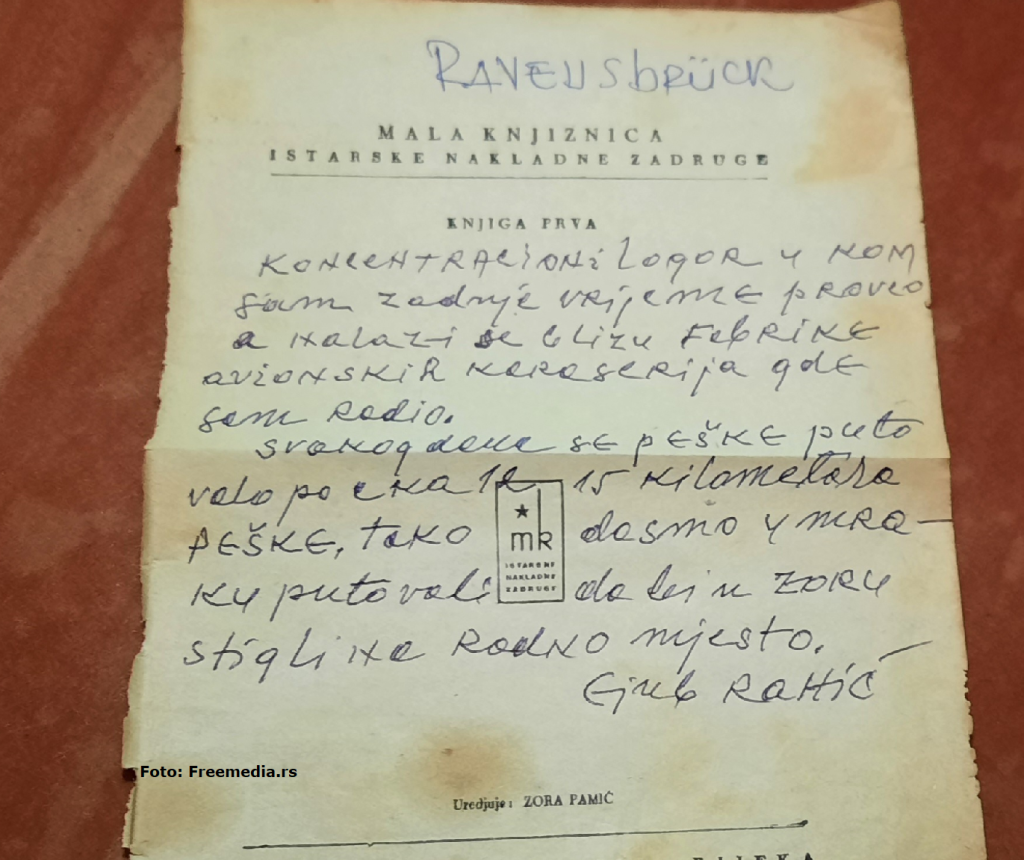 RAVENSbRÜCK
MALA KNJIZNICA
ISTARSKE NAKLADNE ZADRUGE
KNJIGA PRVA
KONCENTRACIONi Logor u KOM
sam zadnje vrijeme proveo
a nalazi se blizu FabRIKE
avionskih karoserija gdE
sam radio.
svakog dana se pEŠKE puto
valo po cca 12 15 kilometara
PEŠKE, tako da smo u mra-
ku putovali da bi u zoru
stigli na radno mjesto.
Ejub RaHić
mk
ISTARSKE
NAKLADNE
ZADRUGE
Foto: Freemedia.rs
Uredjuje: ZORA PAMIĆ
RIJEKA